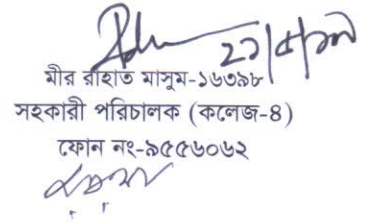 ২১/৫/১৭
মীর রাহাত মাসুম-১৬৩৯৮
সহকারী পরিচালক (কলেজ-৪)
ফোন নং-৯৫৫৬০৬২